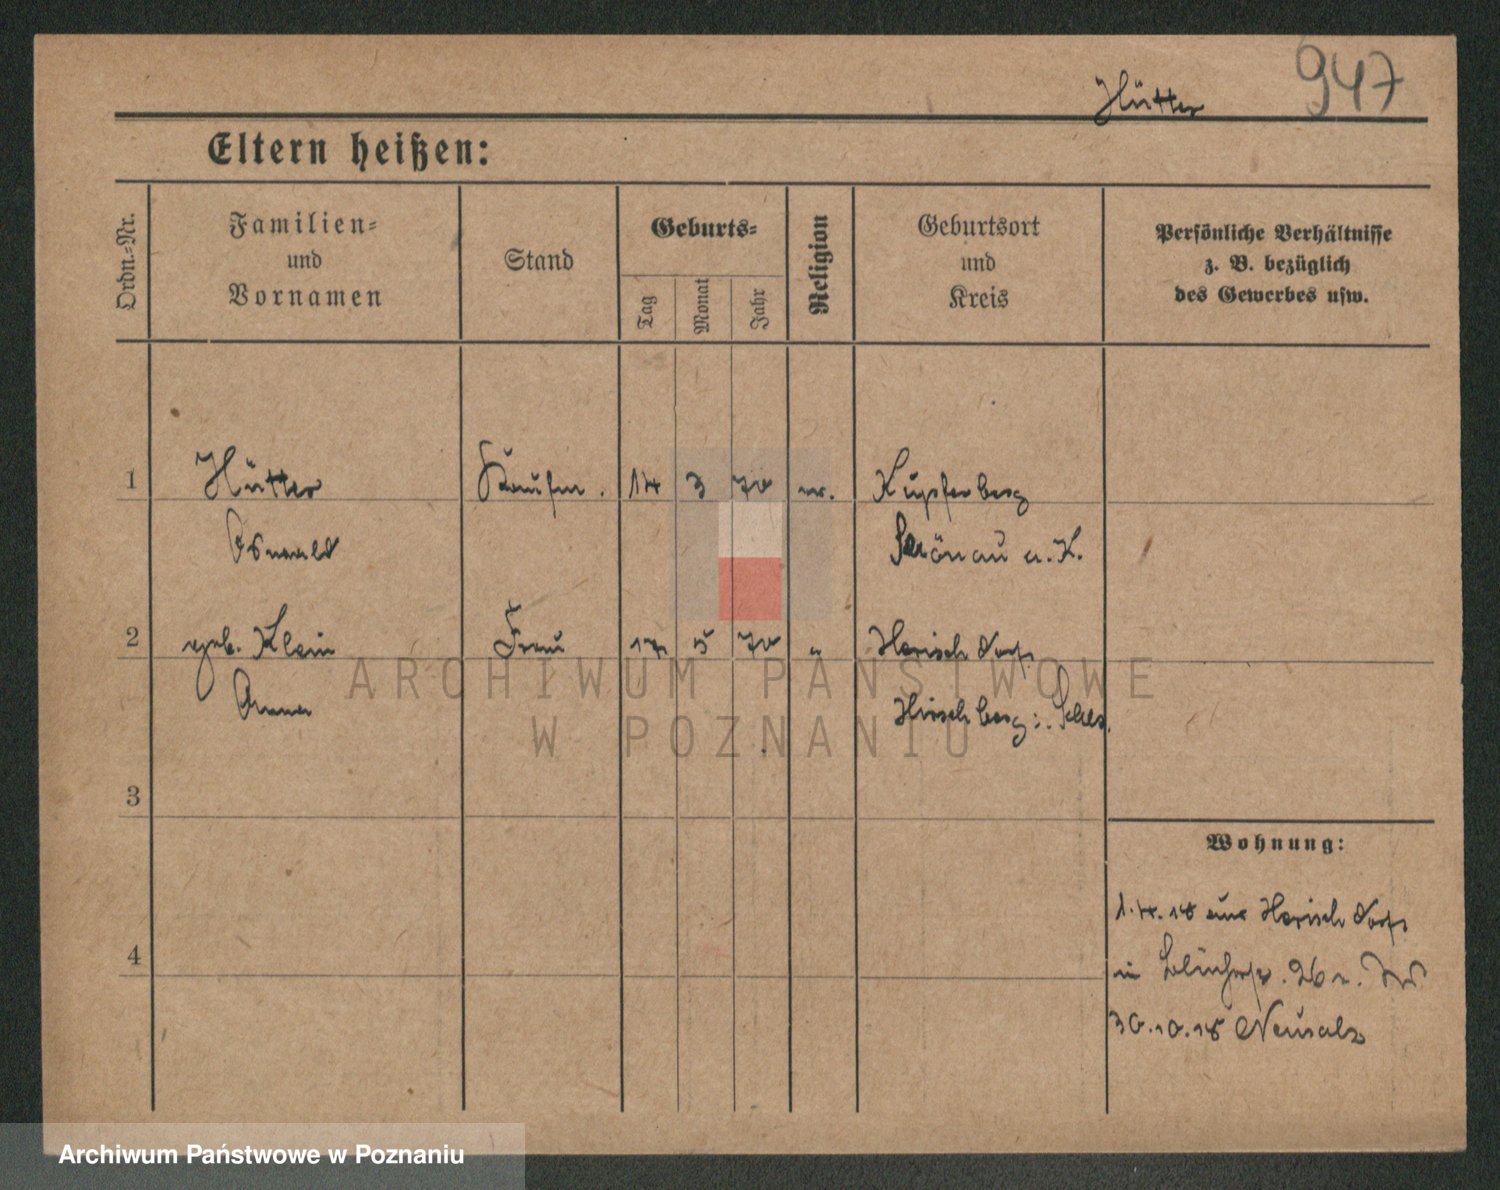 947
Hütter
Eltern heißen:
Ordn.-Nr.
Familien-
und
Vornamen
Stand
Geburts-
Tag
Monat
Jahr
Religion
Geburtsort
und
Kreis
Persönliche Verhältnisse
z. B. bezüglich
des Gewerbes usw.
1 Hütter Kaufm. 14 3 70 Kupferberg
Oswald Schönau a. K.
2 geb. Klein Frau 17 5 70 " Herischdorf
Anna Hirschberg i. Schles.
3
Wohnung:
1.4.18 aus Herischdorf
4
in 26
30.10.18 Neusalz
ARCHIWUM PAŃSTWOWE
W POZNANIU
Archiwum Państwowe w Poznaniu